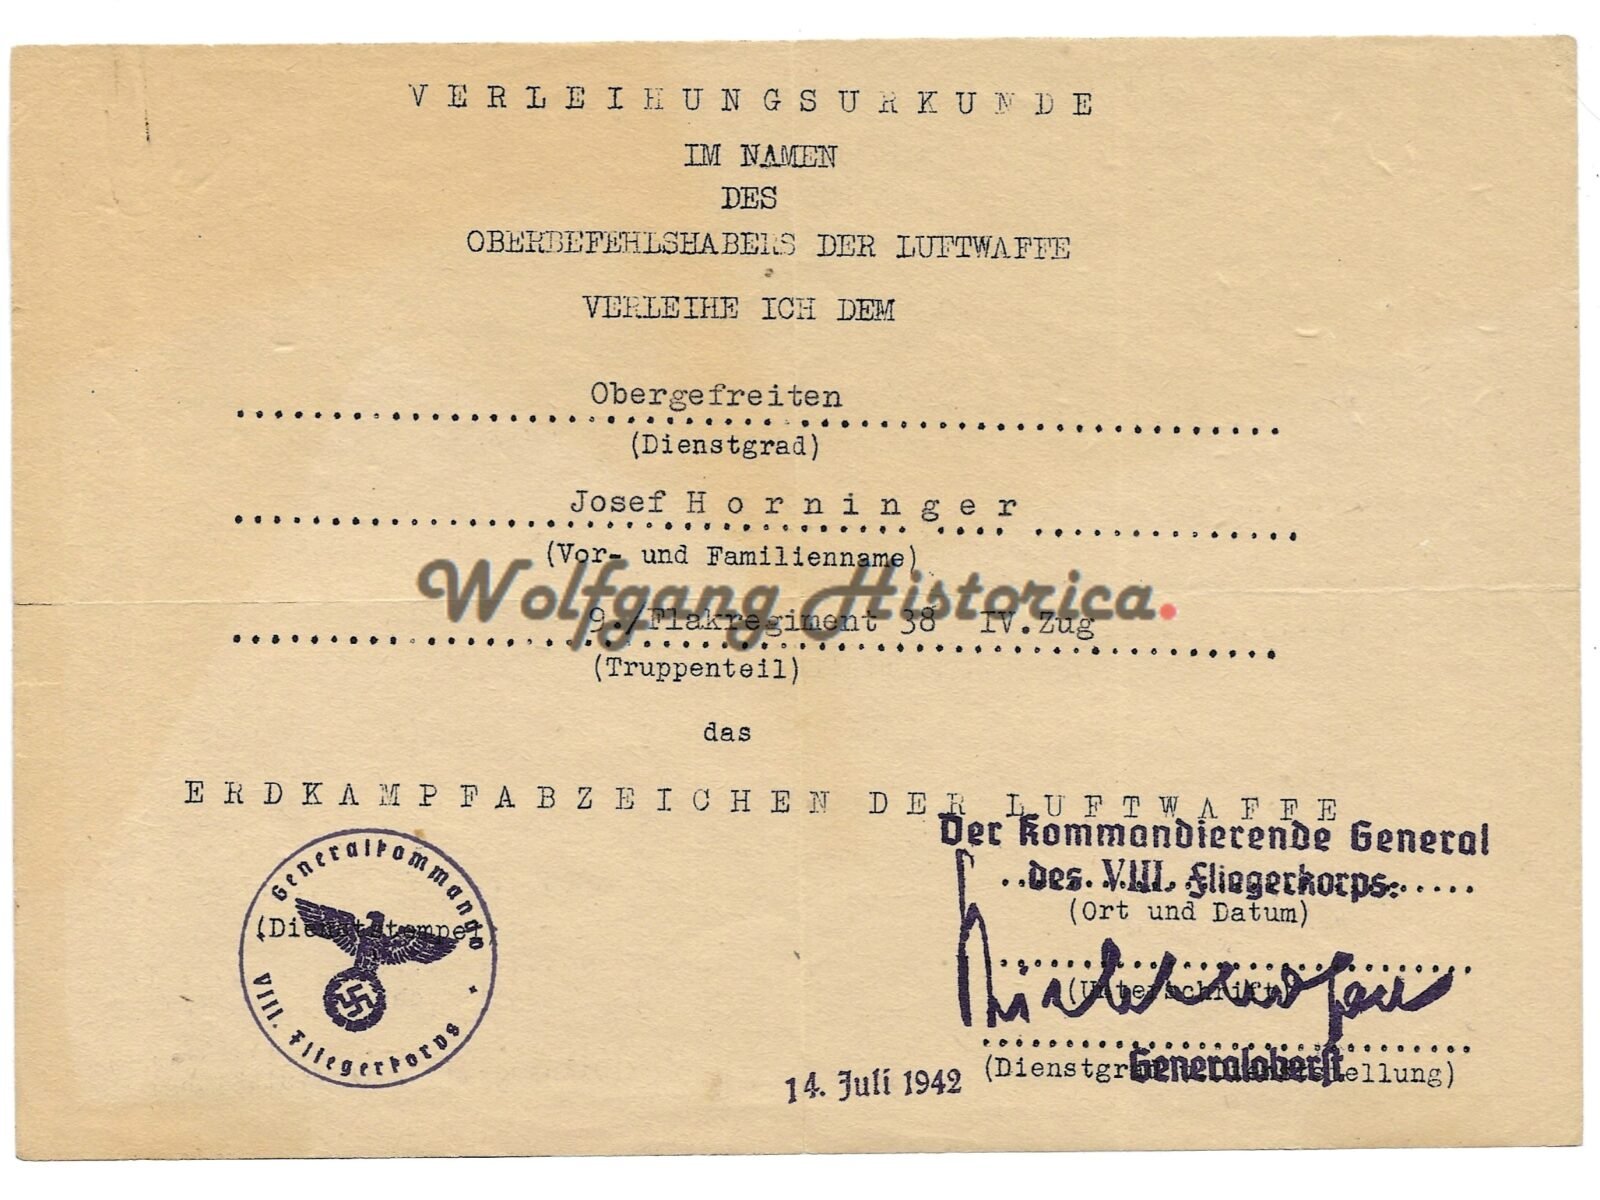 VERLEIHUNGSURKUNDE
IM NAMEN
DES
OBERBEFEHLSHABERS DER LUFTWAFFE
VERLEIHE ICH DEM
Obergefreiten
(Dienstgrad)
Josef Horninger
(Vor- und Familienname)
Wolfgang Historica.
9./Flakregiment 38 IV.Zug
(Truppenteil)
das
ERDKAMPFABZEICHEN DER LUFTWAFFE
Der Kommandierende General
des VIII. Fliegerkorps:
(Ort und Datum)
Generalkommando
(Dienststempel)
VIII. Fliegerkorps
(Unterschrift)
Generaloberst
(Dienstgrad u. Dienststellung)
14. Juli 1942